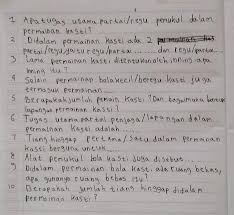 1 Apa tugas utama partai/regu pemukul dalam
permainan kasti?
2 Didalam permainan kasti ada 2
partai/regu, yaitu regu/partai ...... dan regu/partai...
3 Lama permainan kasti ditentukan oleh inning. apa
inning itu?
4 Selain permainan bola kecil/beregu kasti juga
termasuk permainan
5 Berapakah jumlah pemain kasti? Dan bagaimana bentuk
lapangan permainan kasti?
6 Tugas utama partai penjaga/lapangan dalam
permainan kasti adalah
7 Tiang hinggap pertama/satu dalam permainan
kasti berguna untuk
8 Alat pemukul bola kasti juga disebut
9 Didalam permainan bola kasti ada ruang bebas,
apa gunanya ruang bebas itu?
10 Berapakah jumlah tiang hinggap didalam
permainan kasti?